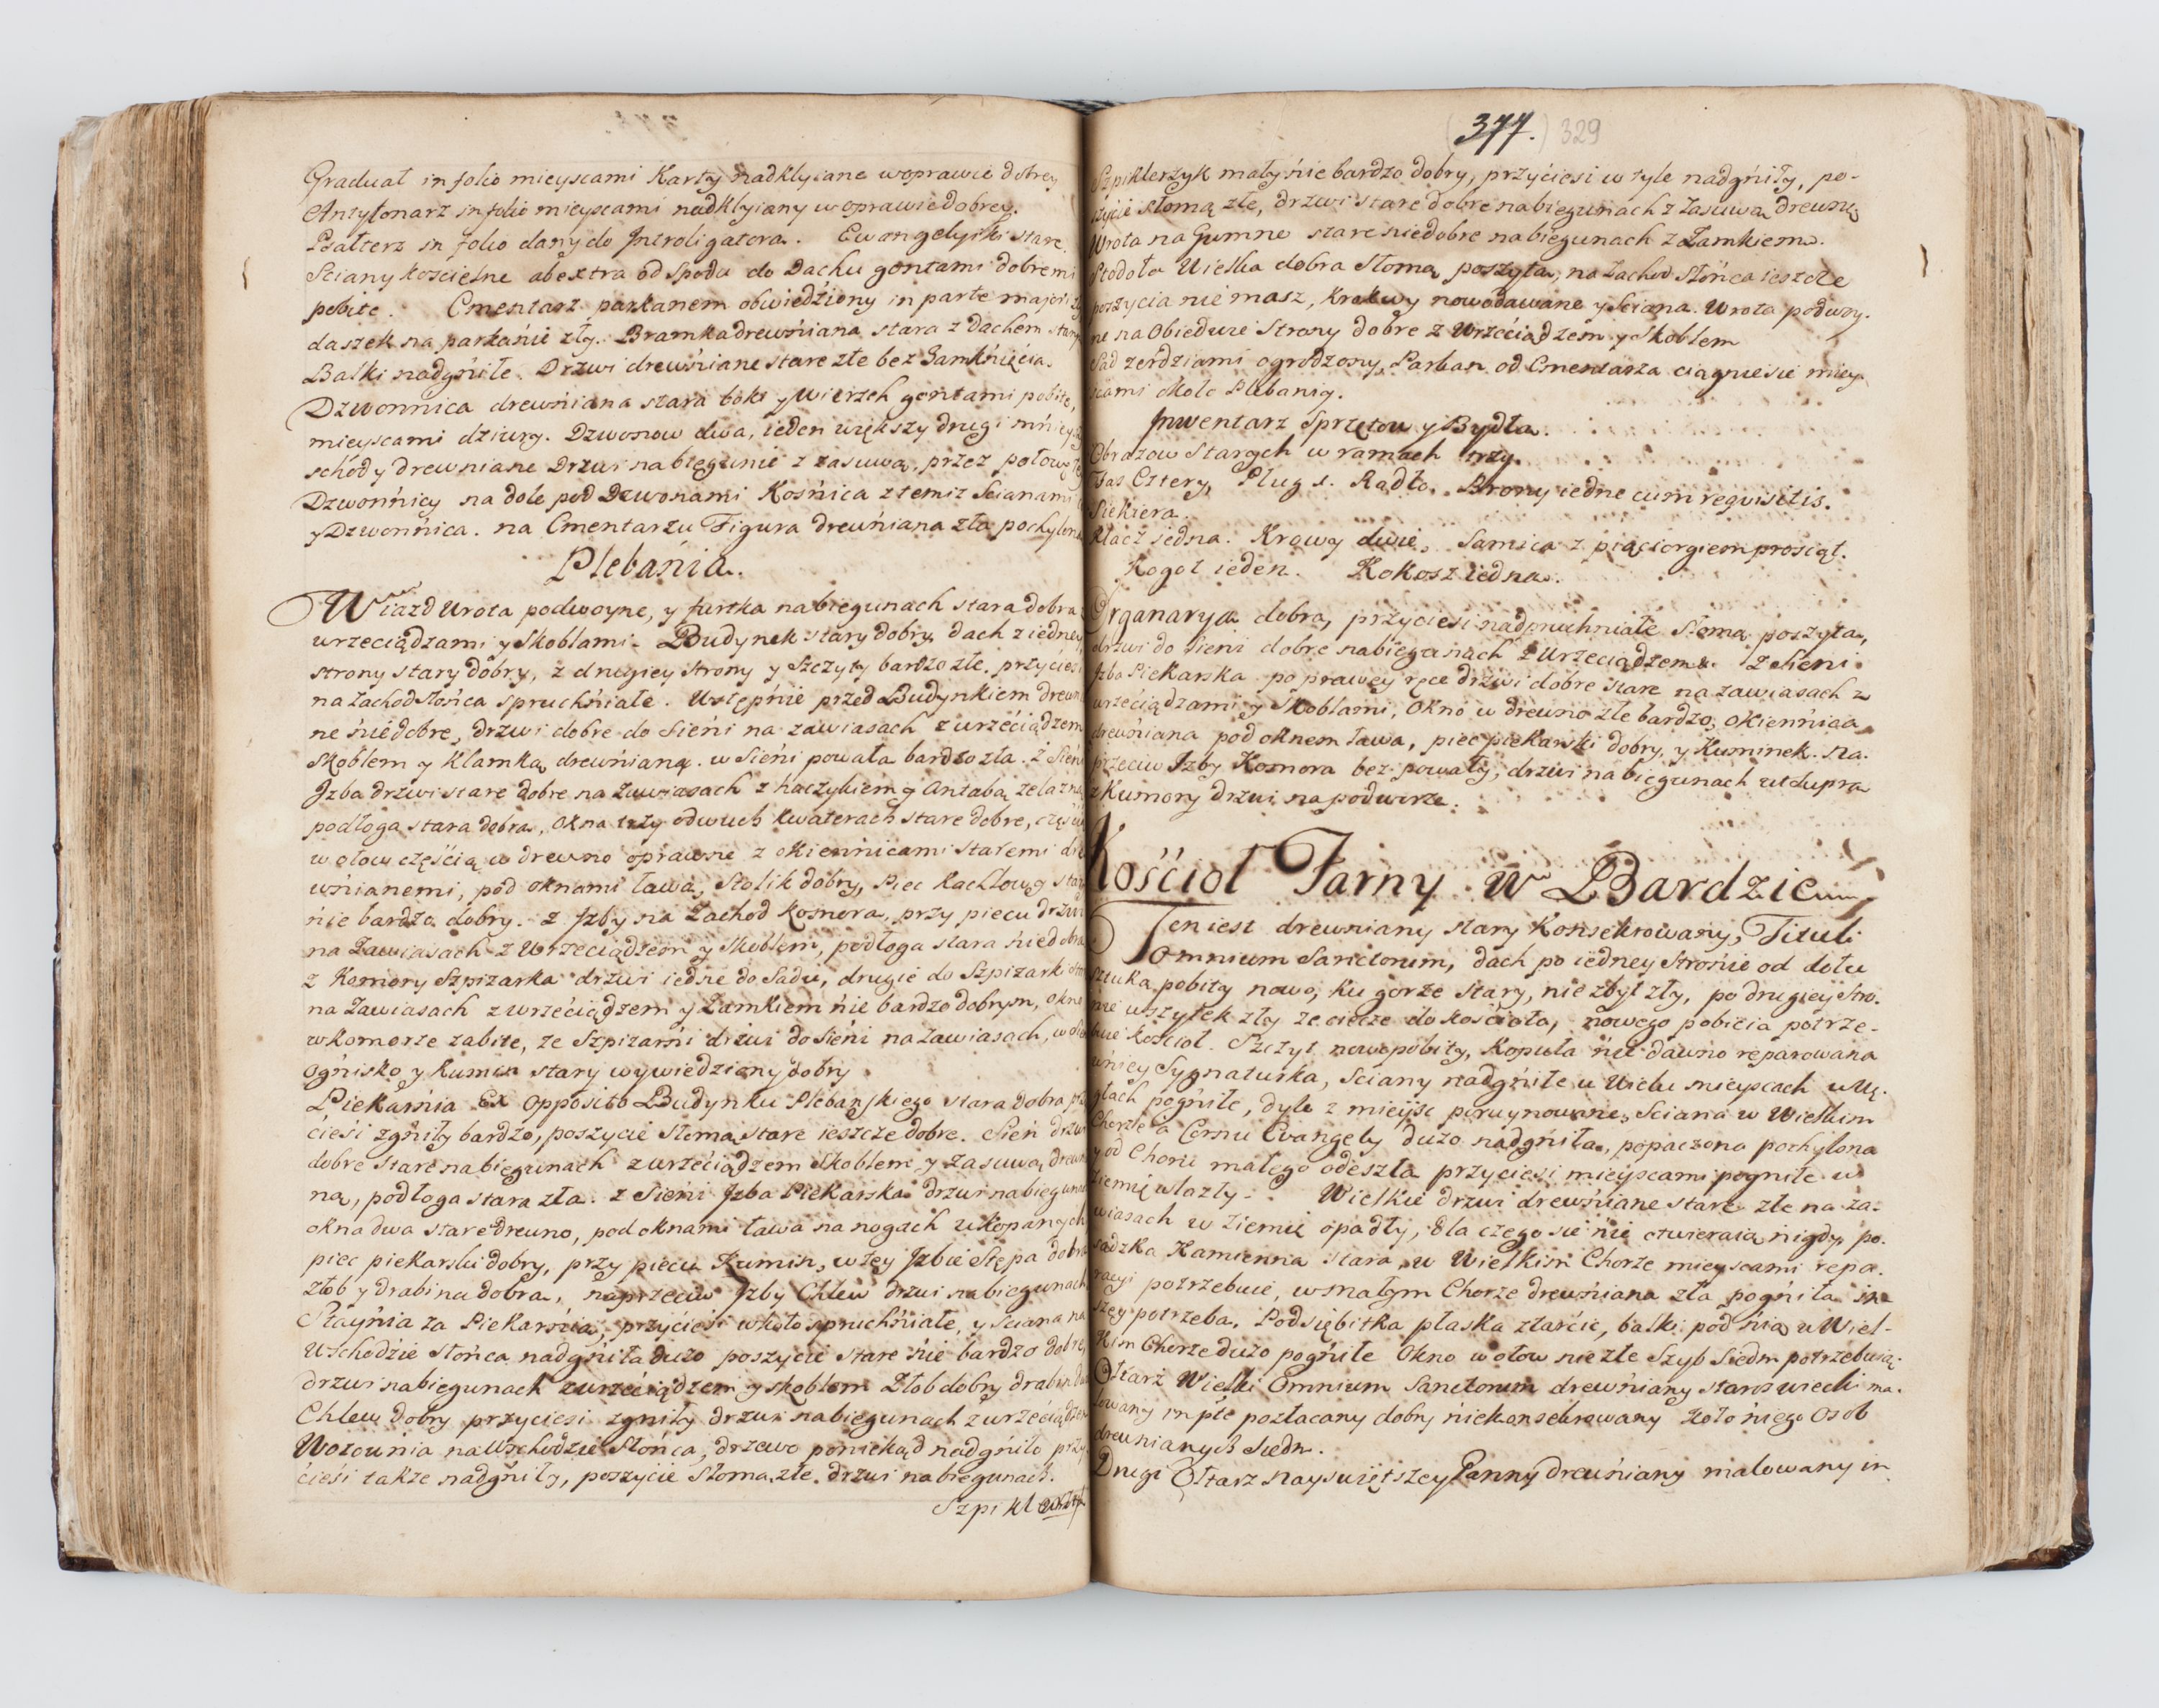 Graduał in folio mieyscami Karty nadklyiane w oprawie dobrey
Antyfonarz in folio mieyscami nadklyiany w oprawie dobrey.
Psałterz in folio dany do Introligatora. Ewangelyiki stare.
Sciany koscielne ab extra od Spodu do Dachu gontami dobremi
pobite. Cmentarz parkanem obwiedźiony in parte majori
daszek na parkańie zły. Bramka drewńiana stara z dachem starym
Balki nadgńiłe. Drzwi drewńiane stare złe bez Zamkńięcia.
Dzwonnica drewńiana stara boki y Wierzch gontami pobite,
mieyscami dziury. Dzwonow dwa, ieden większy drugi mńieyszy
schody drewniane Drzwi na biegunie z zasuwą, przez połowę
Dzwonńicy na dole pod Dzwonami Kosńica z temiz Scianami
y Dzwonńica. na Cmentarzu Figura drewńiana zła pochylona
Plebańia.
Wiazd Wrota podwoyne, y furtka na biegunach stara dobra
wrzeciądzami y Skoblami. Budynek stary dobry, dach z iedney
strony stary dobry, z drugiey strony y Szczyty bardzo złe. przyciesi
na Zachod Słońca spruchńiałe. Wstępńie przed Budynkiem drewnia
ne ńiedobre, drzwi dobre do Sieńi na zawiasach z wrzeciądzem
Skoblem y Klamką drewńianą. w Sieńi powała bardzo zła. Z Sieni
Izba drzwi stare dobre na Zawiasach z haczykiem y Antabą zelazną
podłoga stara dobra, Okna trzy o dwuch kwaterach stare dobre, częścią
w ołow częścią w drewno oprawne z okiennicami staremi dre
wńianemi, pod oknami ława, Stolik dobry, Piec kachlowy stary
ńie bardzo dobry. z Izby na Zachod komora, przy piecu drzwi
na Zawiasach z Wrzeciądzem y Skoblem, podłoga stara ńiedobra
z Komory Szpizarka drzwi iedne do Sadu, drugie do Szpizarki
na Zawiasach z wrzeciądzem y Zamkiem ńie bardzo dobrym, okno
w komorze zabite, ze Szpizarni drzwi do Sieńi na Zawiasach,
Ognisko y Kumin stary wywiedziony dobry
Piekarńia Ex opposito Budynku Plebańskiego stara dobra przy
ciesi zgńiły bardzo, poszycie słomą stare ieszcze dobre. Sień drzwi
dobre stare na biegunach z wrzeciądzem Skoblem y Zasuwą drewnia
ną, podłoga stara zła. z Sieńi Izba Piekarska drzwi na biegunach
okna dwa stare drewno, pod oknami ława na nogach wkopanych
piec piekarski dobry, przy piecu Kumin, w tey Izbie Stępa dobra
złob y drabina dobra, naprzeciw Izby Chlew drzwi na biegunach
Staynia za Piekarńią, przyciesi w koło spruchńiałe, y Sciana na
Wschodźie słońca nadgńiła duzo poszycie stare ńie bardzo dobre
drzwi na biegunach z wrzeciądzem y skoblem Złob dobry drabin dwie
Chlew dobry przyciesi zgniły drzwi na biegunach z wrzeciądzem
Wozownia na Wschodzie Słońca, drzewo poniekąd nadgńiło przy
ciesi także nadgńiły, poszycie Słomą złe. drzwi na biegunach.
Szpiklerzyk
377. 329
Szpiklerzyk mały ńie bardzo dobry, przyciesi w tyle nadgńiły, po-
szycie słomą złe, drzwi stare dobre na biegunach z Zasuwą drewnią
Wrota na Gumno stare niedobre na biegunach z Zamkiem.
Stodoła Wielka dobra Słomą poszyta, na Zachod Słońca ieszcze
poszycia nie masz, Krokwy nowo dawane y Sciana. Wrota podwoy-
ne na Obiedwie Strony dobre z Wrzeciądzem y Skoblem
Sad zerdziami ogrodzony, Parkan od Cmentarza ciągnie się miey-
scami około Plebanij.
Inwentarz Sprzętow y Bydła.
Obrazow Starych w ramach trzy.
Fas Cztery, Pług 1. Radło. Brony iedne cum requisitis.
Siekiera.
Klacz iedna. Krowy dwie, Samica z pięciorgiem prosiąt.
Kogot ieden. Kokosz iedna.
Organarya dobra, przyciesi nadpruchniałe słomą poszyta,
drzwi do Sieni dobre na bieganach z Wrzeciądzem. Z Sieni
Izba Piekarska po prawey ręce drzwi dobre stare na zawiasach z
wrzeciądzami y Skoblami, Okno w drewno złe bardzo, Okiennica
drewńiana pod oknem ława, piec piekarski dobry, y Kuminek. Na-
przeciw Izby Komora bez powały, drzwi na biegunach ut supra
z Kumory drzwi na podworze.
Kościoł Farny w Bardzie
Ten iest drewniany stary Konsekrowany, Tituli
Omnium Sanctorum, dach po iedney Strońie od dołu
sztuka pobity nowo, ku gorze stary, nie zbyt zły, po drugiey Stro-
nie wszytek zły ze ciecze do kościoła, nowego pobicia potrze-
buie kościoł. Szczyt nowo pobity, Kopuła ńie dawno reparowana
w niey Sygnaturka, Sciany nadgńiłe w Wielu mieyscach u Wę-
głach pogńiłe, dyle z mieysc poruynowane, Sciana w Wielkim
Chorze a Cornu Evangely duzo nadgńiła, popaczona pochylona
y od Choru małego odeszła przyciesi mieyscami pogniłe w
ziemię wlazły. Wielkie drzwi drewńiane stare złe na za-
wiasach w Ziemię opadły, dla czego się ńie otwieraią nigdy, po-
sadzka Kamienna stara, w Wielkim Chorze mieyscami repa-
racyi potrzebuie, w małym Chorze drewńiana zła pogńiła in
szey potrzeba. Podsiębitka płaska z tarcic, balki pod nią w Wiel-
kim Chorze duzo pogńiłe Okno w ołow nie złe Szyb Siedm potrzebuią.
Ołtarz Wielki Omnium Sanctorum drewńiany staroswiecki ma-
lowany in pte pozłacany dobry ńiekonsekrowany koło ńiego Osob
drewnianych Siedm.
Drugi Ołtarz Nayswiętszey Panny drewńiany malowany in